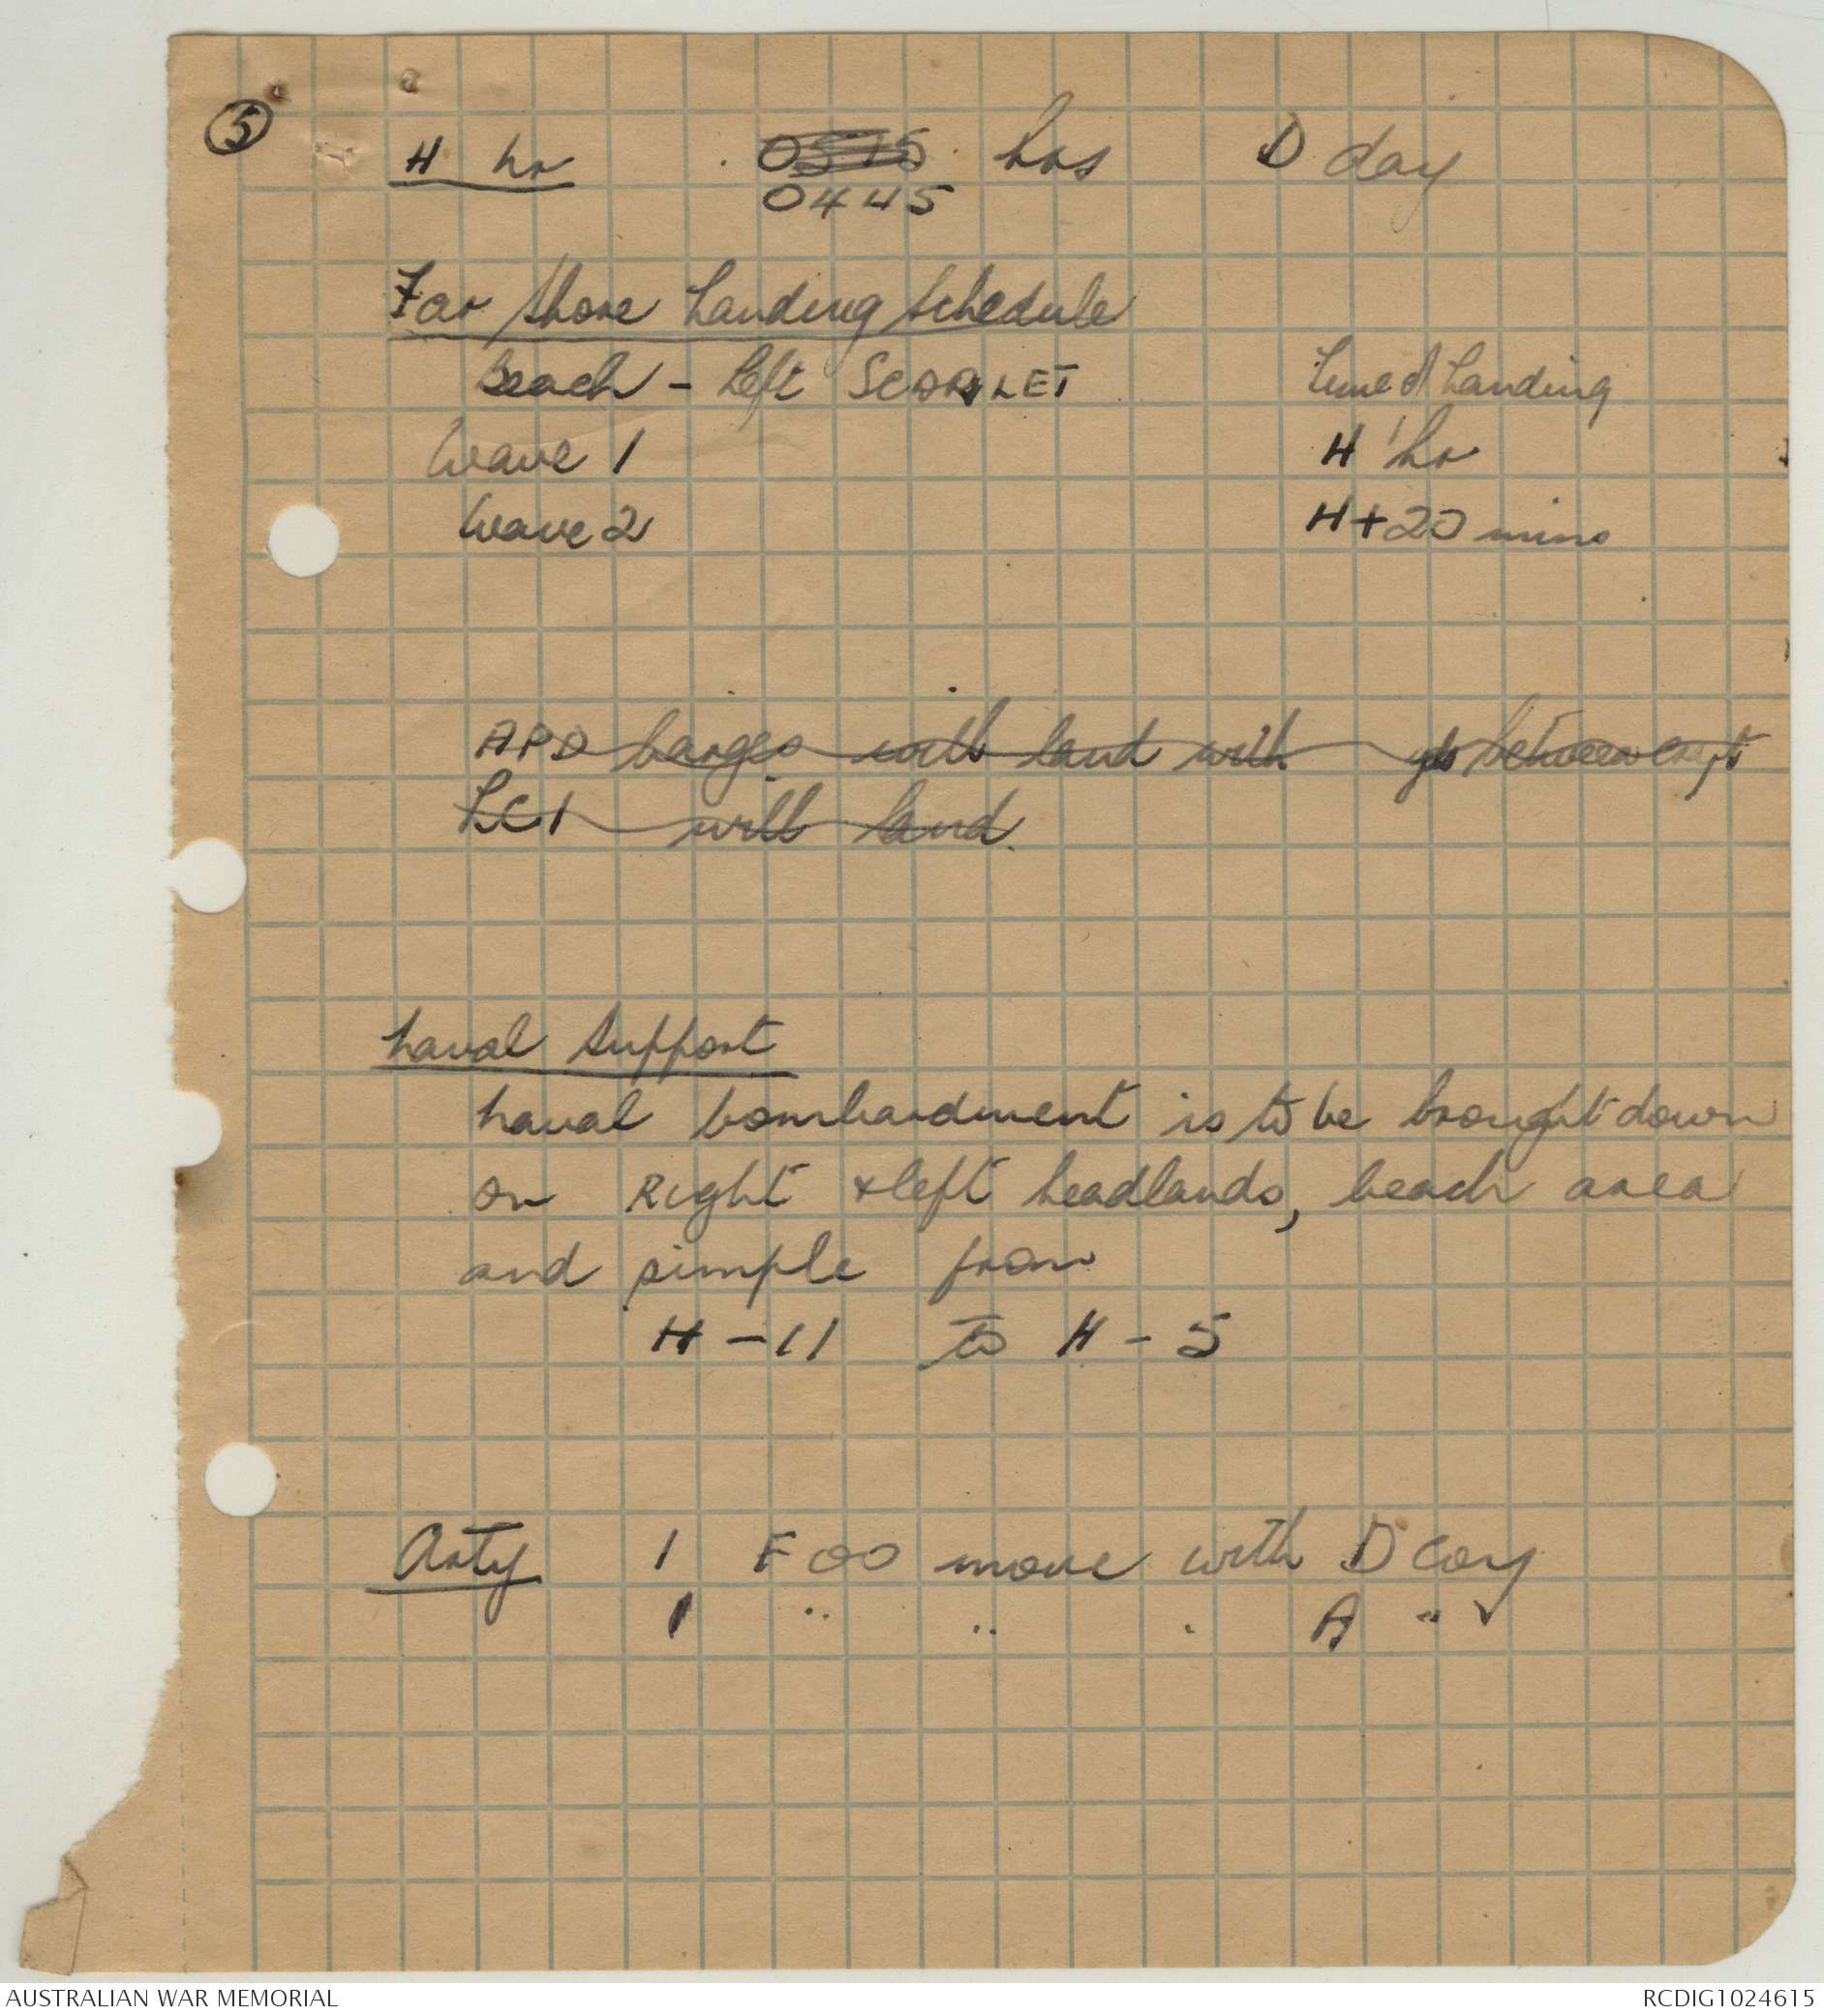 5
H hr 0515 hrs D day
0445
Far Shore Landing Schedule
Beach - Left SCARLET Time of Landing
Wave 1 H hr
Wave 2 H + 20 mins
APD barges will land with yds between craft
LCI will land
Naval Support
Naval bombardment is to be brought down
on Right + left headlands, beach area
and simple from
H - 11 to H - 5
Arty 1 FOO move with D Coy
1 " " " A "
AUSTRALIAN WAR MEMORIAL RCDIG1024615